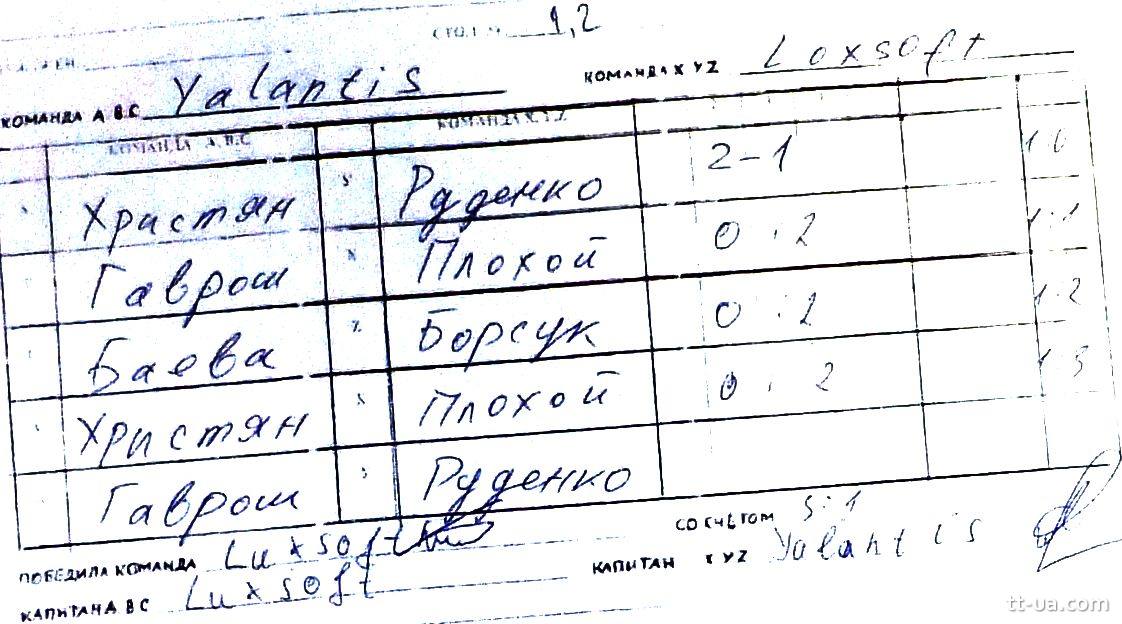 СТОЛ № 1,2
КОМАНДА А.В.С Yalantis КОМАНДА X YZ Loxsoft
КОМАНДА А.В.С КОМАНДА X.Y.Z
Христян Y Руденко 2-1 1:0
Гаврош X Плохой 0:2 1:1
Баева Z Борсук 0:2 1-2
Христян X Плохой 0:2 1-3
Гаврош Руденко
ПОБЕДИЛА КОМАНДА Luxsoft СО СЧЁТОМ :1
КАПИТАН А ВС Luxsoft КАПИТАН X YZ Yalantis
tt-ua.com